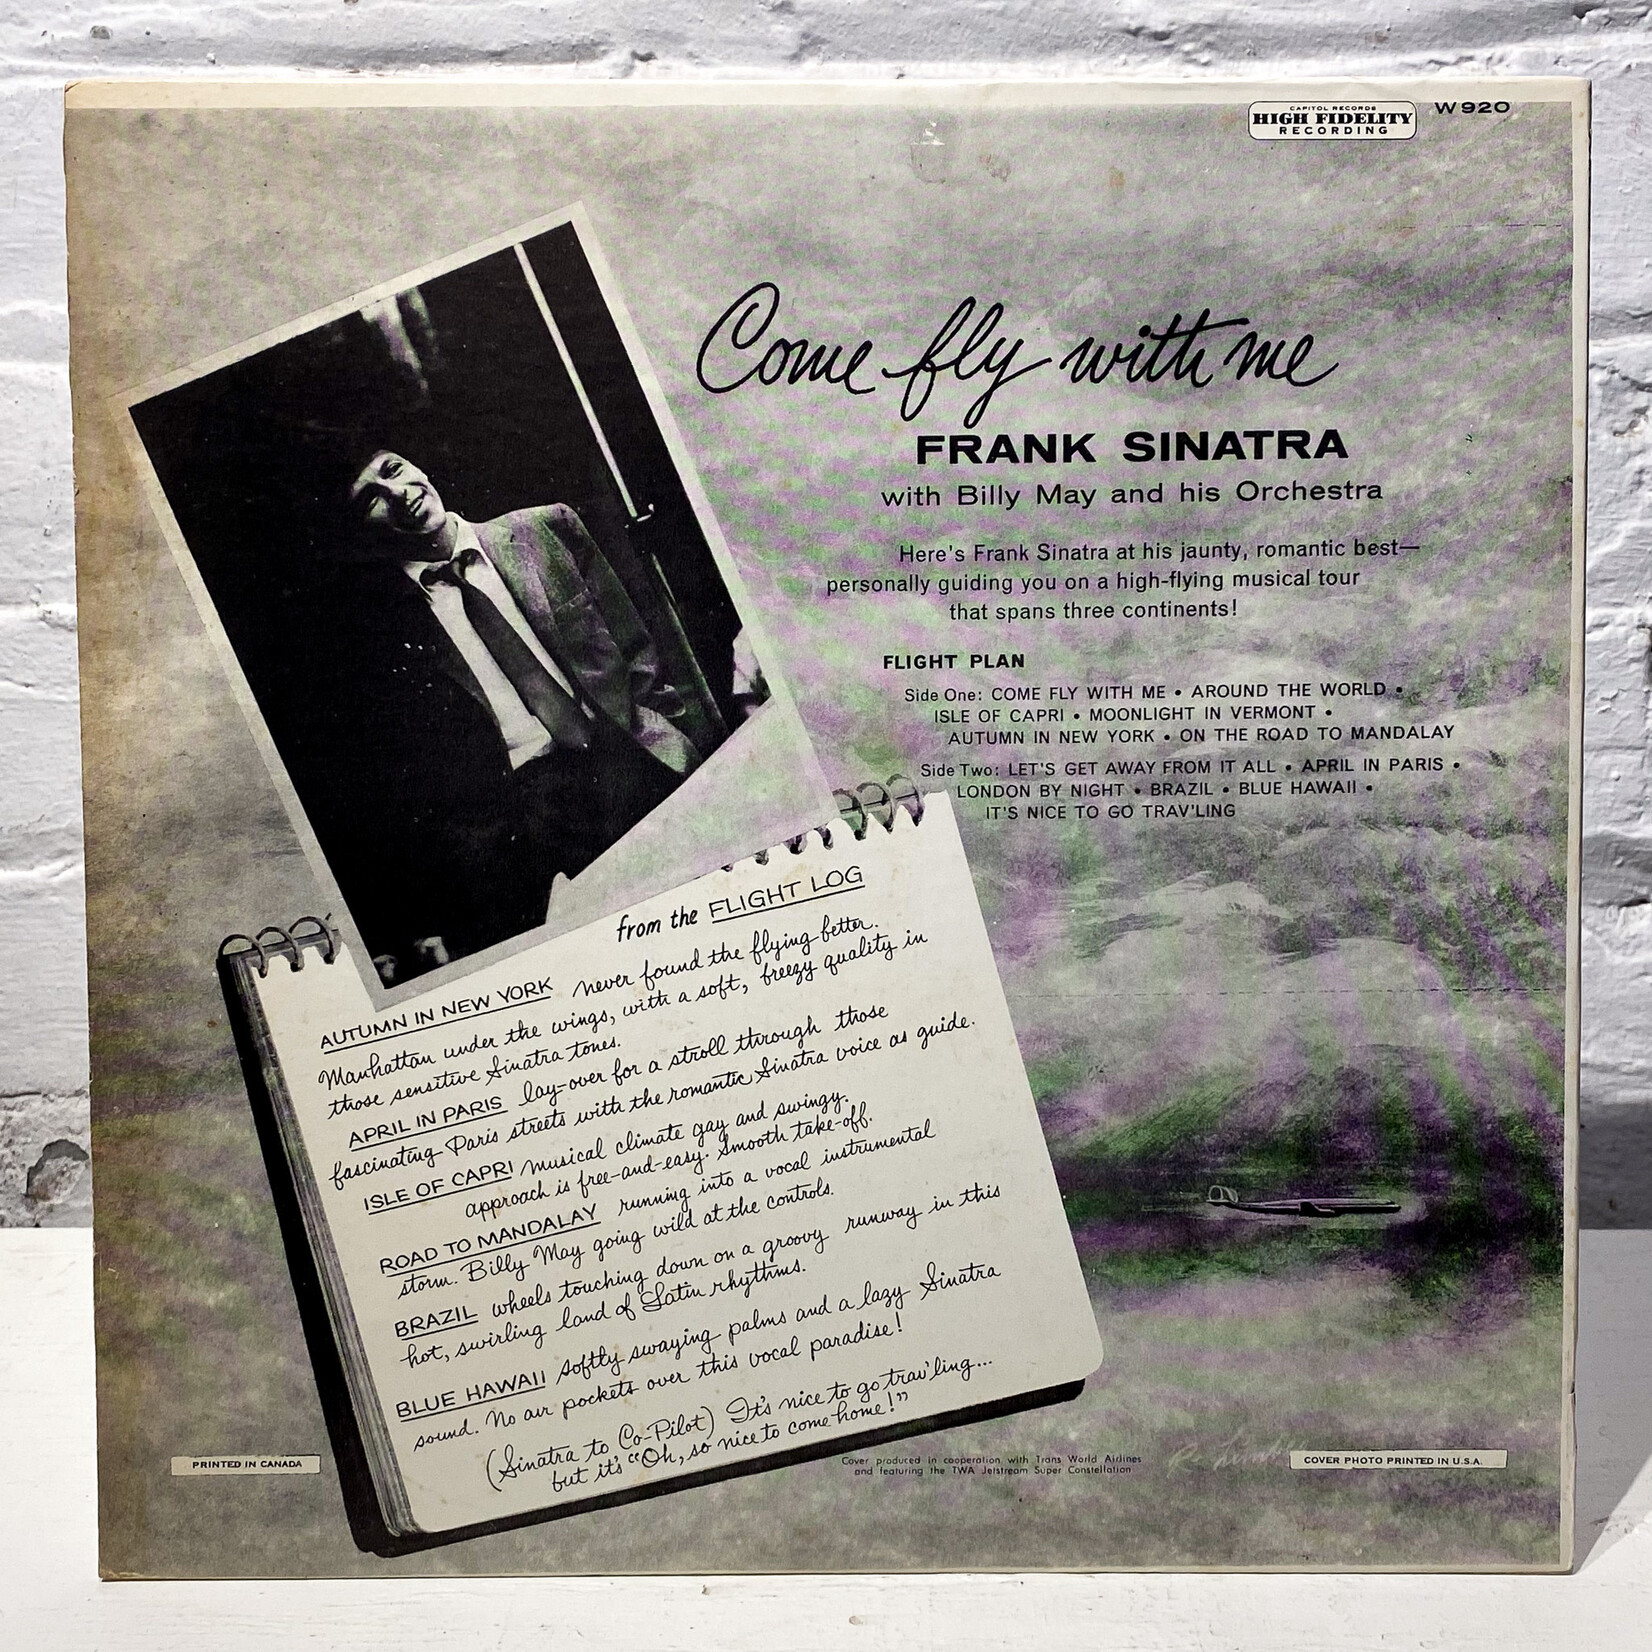 CAPITOL RECORDS
HIGH FIDELITY
RECORDING
W920
Come fly with me
FRANK SINATRA
with Billy May and his Orchestra
Here's Frank Sinatra at his jaunty, romantic best—
personally guiding you on a high-flying musical tour
that spans three continents!
FLIGHT PLAN
Side One: COME FLY WITH ME • AROUND THE WORLD •
ISLE OF CAPRI • MOONLIGHT IN VERMONT •
AUTUMN IN NEW YORK • ON THE ROAD TO MANDALAY
Side Two: LET'S GET AWAY FROM IT ALL • APRIL IN PARIS •
LONDON BY NIGHT • BRAZIL • BLUE HAWAII •
IT'S NICE TO GO TRAV'LING
from the FLIGHT LOG
AUTUMN IN NEW YORK never found the flying better.
Manhattan under the wings, with a soft, breezy quality in
those sensitive Sinatra tones.
APRIL IN PARIS lay-over for a stroll through those
fascinating Paris streets with the romantic Sinatra voice as guide.
ISLE OF CAPRI musical climate gay and swingy.
approach is free-and-easy. Smooth take-off.
ROAD TO MANDALAY running into a vocal instrumental
storm. Billy May going wild at the controls.
BRAZIL wheels touching down on a groovy runway in this
hot, swirling land of Latin rhythms.
BLUE HAWAII softly swaying palms and a lazy Sinatra
sound. No air pockets over this vocal paradise!
(Sinatra to Co-Pilot) It's nice to go trav'ling...
but it's "Oh, so nice to come home!"
PRINTED IN CANADA
Cover produced in cooperation with Trans World Airlines
and featuring the TWA Jetstream Super Constellation
COVER PHOTO PRINTED IN U.S.A.